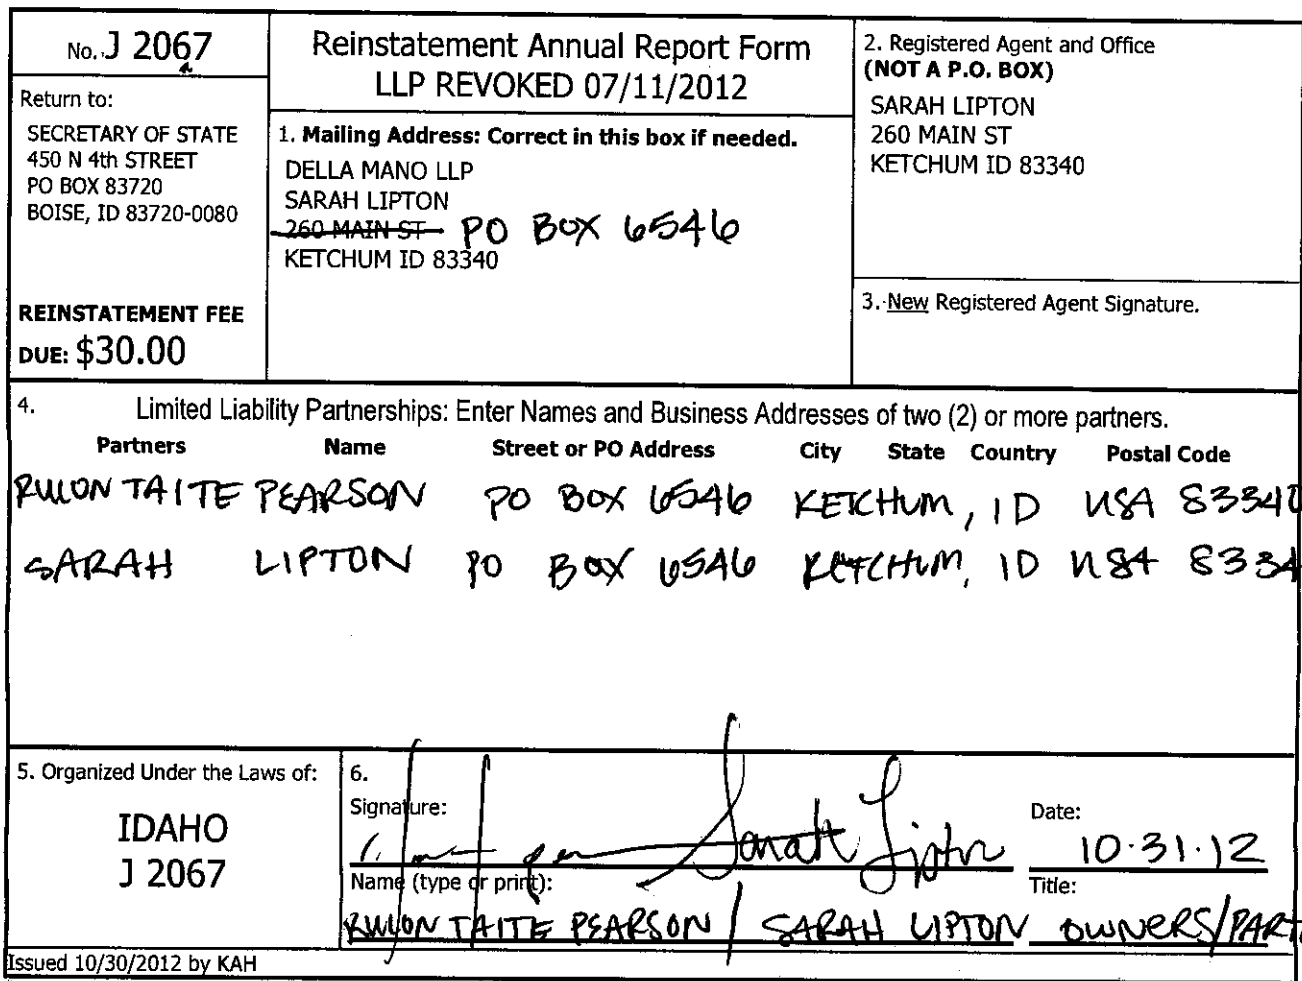 No. J 2067
Return to:
SECRETARY OF STATE
450 N 4th STREET
PO BOX 83720
BOISE, ID 83720-0080
REINSTATEMENT FEE
DUE: $30.00
Reinstatement Annual Report Form
LLP REVOKED 07/11/2012
1. Mailing Address: Correct in this box if needed.
DELLA MANO LLP
SARAH LIPTON
260 MAIN ST PO BOX 6546
KETCHUM ID 83340
2. Registered Agent and Office
(NOT A P.O. BOX)
SARAH LIPTON
260 MAIN ST
KETCHUM ID 83340
3. New Registered Agent Signature.
4. Limited Liability Partnerships: Enter Names and Business Addresses of two (2) or more partners.
Partners Name Street or PO Address City State Country Postal Code
RULON TAITE PEARSON PO BOX 6546 KETCHUM, ID USA 83340
SARAH LIPTON PO BOX 6546 KETCHUM, ID USA 8334
5. Organized Under the Laws of:
IDAHO
J 2067
6.
Signature:
Sarah Lipton
Date:
10·31·12
Name (type or print):
RULON TAITE PEARSON / SARAH LIPTON
Title:
OWNERS/PART
Issued 10/30/2012 by KAH